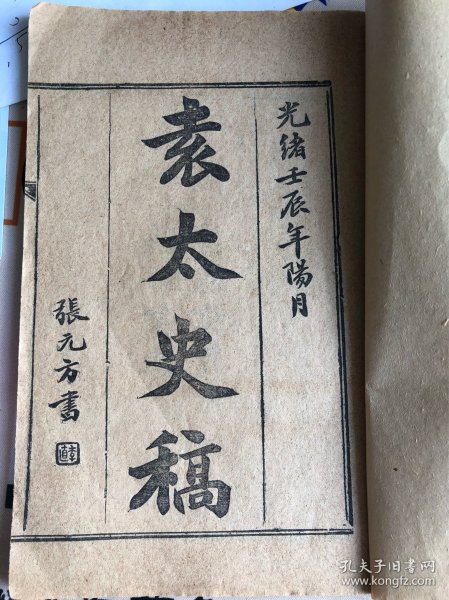 光緒壬辰年陽月
袁太史稿
張元方書
孔夫子旧书网
www.kongfz.com